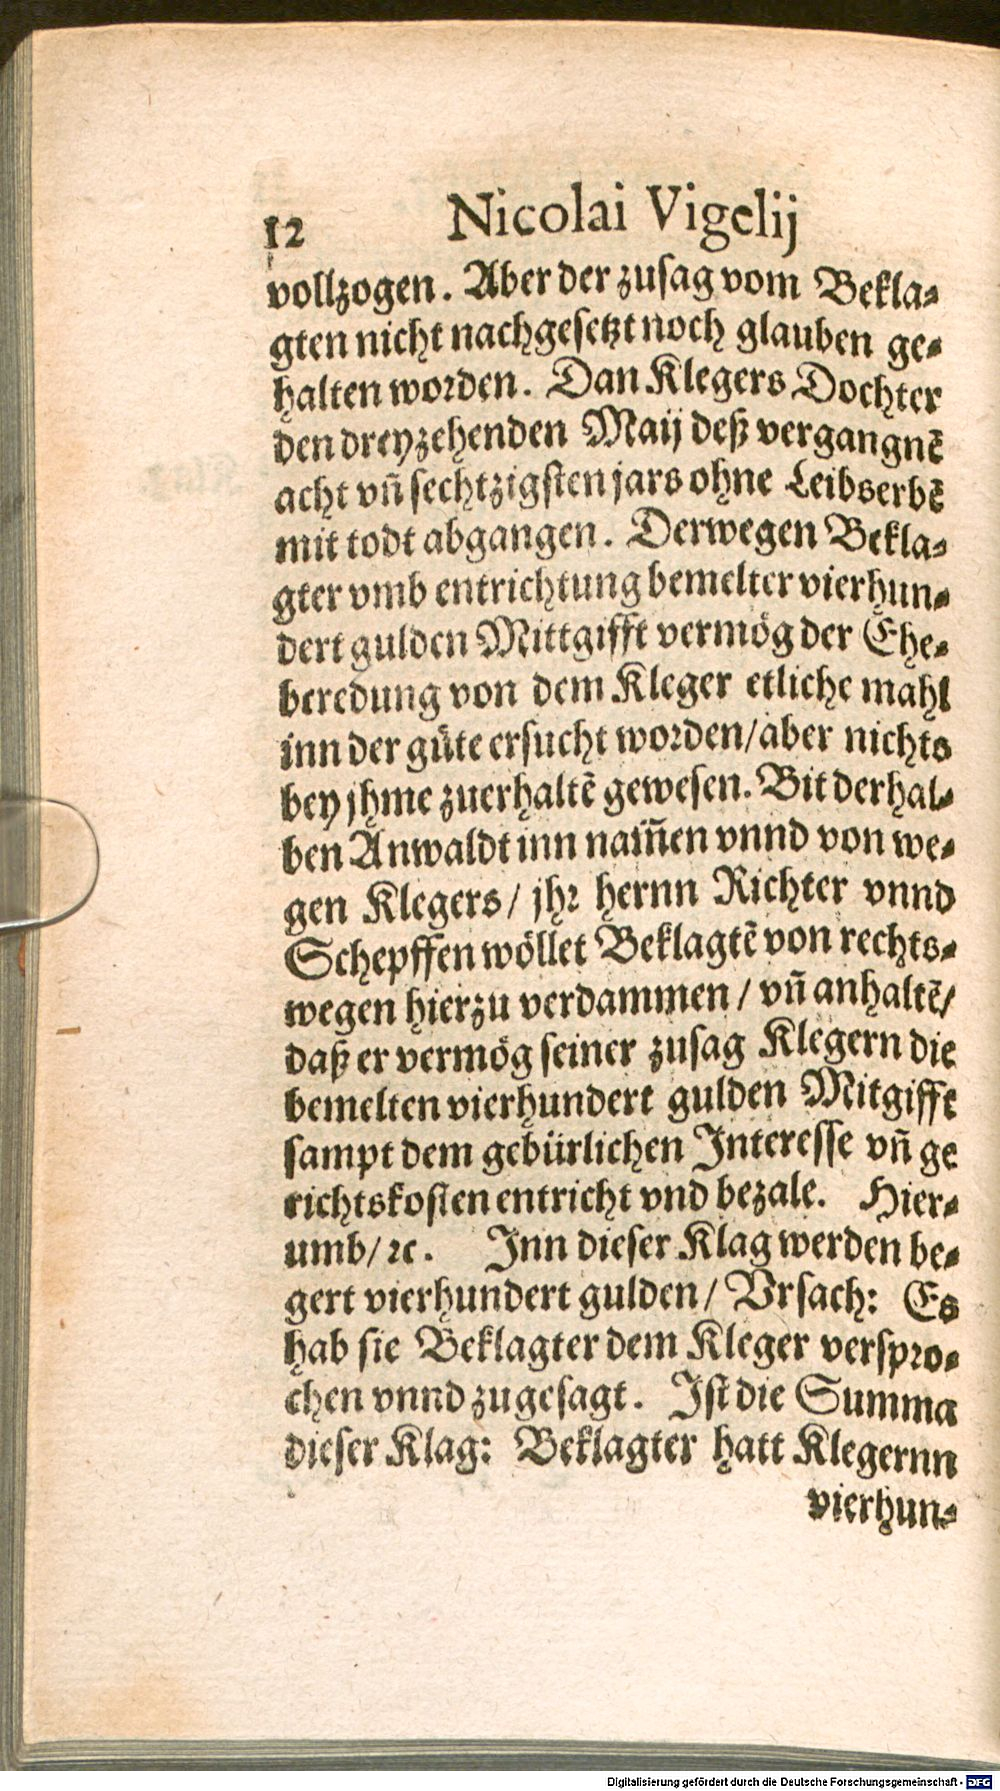 12 Nicolai Vigelij
vollzogen. Aber der zusag vom Bekla-
gten nicht nachgesetzt noch glauben ge-
halten worden. Dan Klegers Dochter
den dreyzehenden Maij deß vergangnẽ
acht vñ sechtzigsten jars ohne Leibserbẽ
mit todt abgangen. Derwegen Bekla-
gter vmb entrichtung bemelter vierhun-
dert gulden Mittgifft vermög der Ehe-
beredung von dem Kleger etliche mahl
inn der güte ersucht worden/aber nichts
bey jhme zuerhaltẽ gewesen. Bit derhal-
ben Anwaldt inn nam̃en vnnd von we-
gen Klegers/ jhr hernn Richter vnnd
Schepffen wöllet Beklagtẽ von rechts-
wegen hierzu verdammen/ vñ anhaltẽ/
daß er vermög seiner zusag Klegern die
bemelten vierhundert gulden Mitgifft
sampt dem gebürlichen Interesse vñ ge
richtskosten entricht vnd bezale. Hier-
umb/ ꝛc. Inn dieser Klag werden be-
gert vierhundert gulden/ Vrsach: Es
hab sie Beklagter dem Kleger verspro-
chen vnnd zugesagt. Ist die Summa
dieser Klag: Beklagter hatt Klegernn
vierhun-
Digitalisierung gefördert durch die Deutsche Forschungsgemeinschaft - DFG